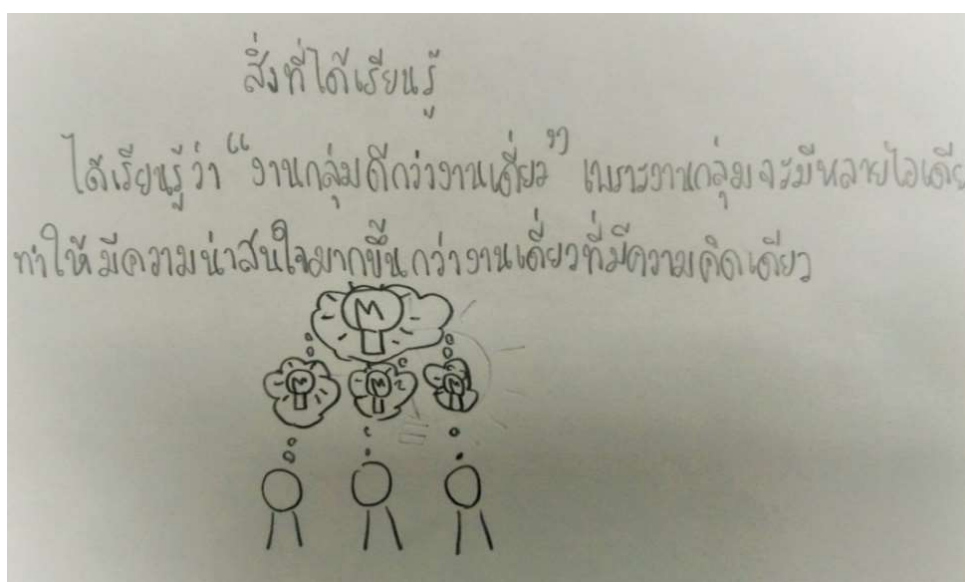 สิ่งที่ได้เรียนรู้
ได้เรียนรู้ว่า “งานกลุ่มดีกว่างานเดี่ยว” เพราะงานกลุ่มจะมีหลายไอเดีย
ทำให้มีความน่าสนใจมากขึ้นกว่างานเดี่ยวที่มีความคิดเดียว